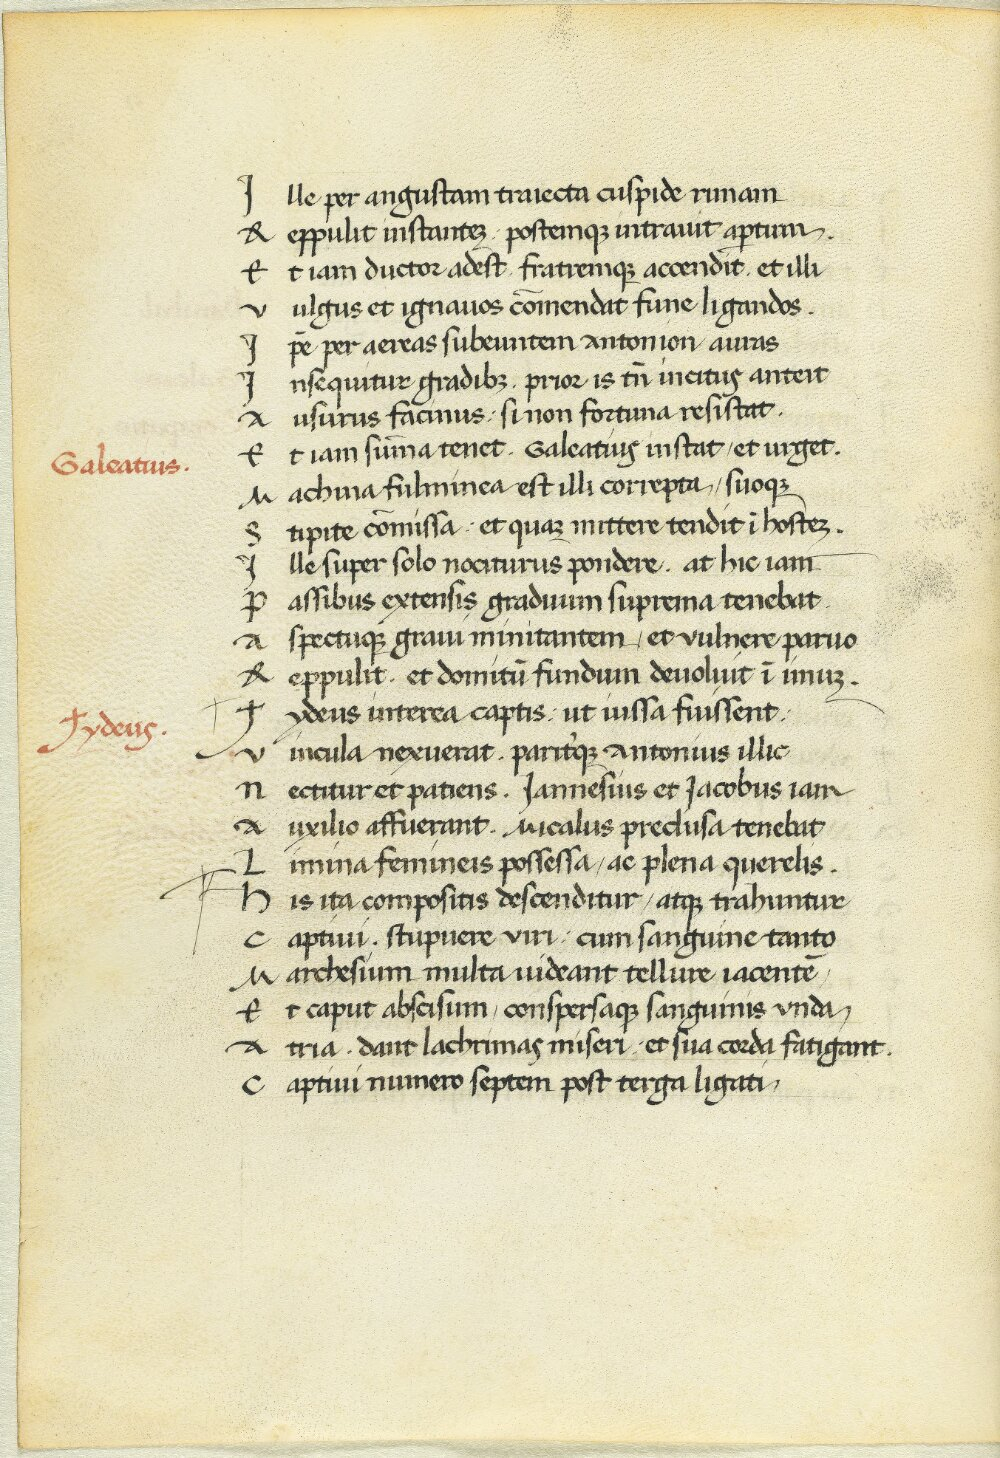 Ille per angustam traiecta cuspide rimam
Reppulit instantez · postemqꝫ intrauit apertum.
Et iam ductor adest · fratremqꝫ accendit · et illi
Vulgus et ignauos cōmendat fune ligandos.
Ip̄e per aereas subeuntem Antonion auras
Insequitur gradibꝫ · prior is tn̄ incitus anteit
Ausurus facinus · si non fortuna resistat.
Galeatius.
Et iam sūma tenet. Galeatius instat / et urget.
Machina fulminea est illi correpta / suoqꝫ
Stipite cōmissa · et quaꝫ mittere tendit ī hosteꝫ.
Ille super solo nociturus pondere. at hic iam
Passibus extensis graduum suprema tenebat
Aspectuqꝫ graui minitantem / et vulnere paruo
Reppulit. et domitū fundum deuoluit ī imuꝫ.
Tydeus.
Tydeus interea captis · ut iussa fuissent ·
Vincula nexuerat. parit'qꝫ Antonius illic
Nectitur et patiens. Jannesius et Jacobus iam
Auxilio affuerant. Micalus preclusa tenebat
Limina femineis possessa / ac plena querelis.
His ita compositis descenditur / atqꝫ trahuntur
Captiui. stupuere viri · cum sanguine tanto
Marchesium multa uideant tellure iacentē /
Et caput abscisum / conspersaqꝫ sanguinis vnda
Atria. dant lachrimas miseri · et sua corda fatigant.
Captiui numero septem post terga ligati